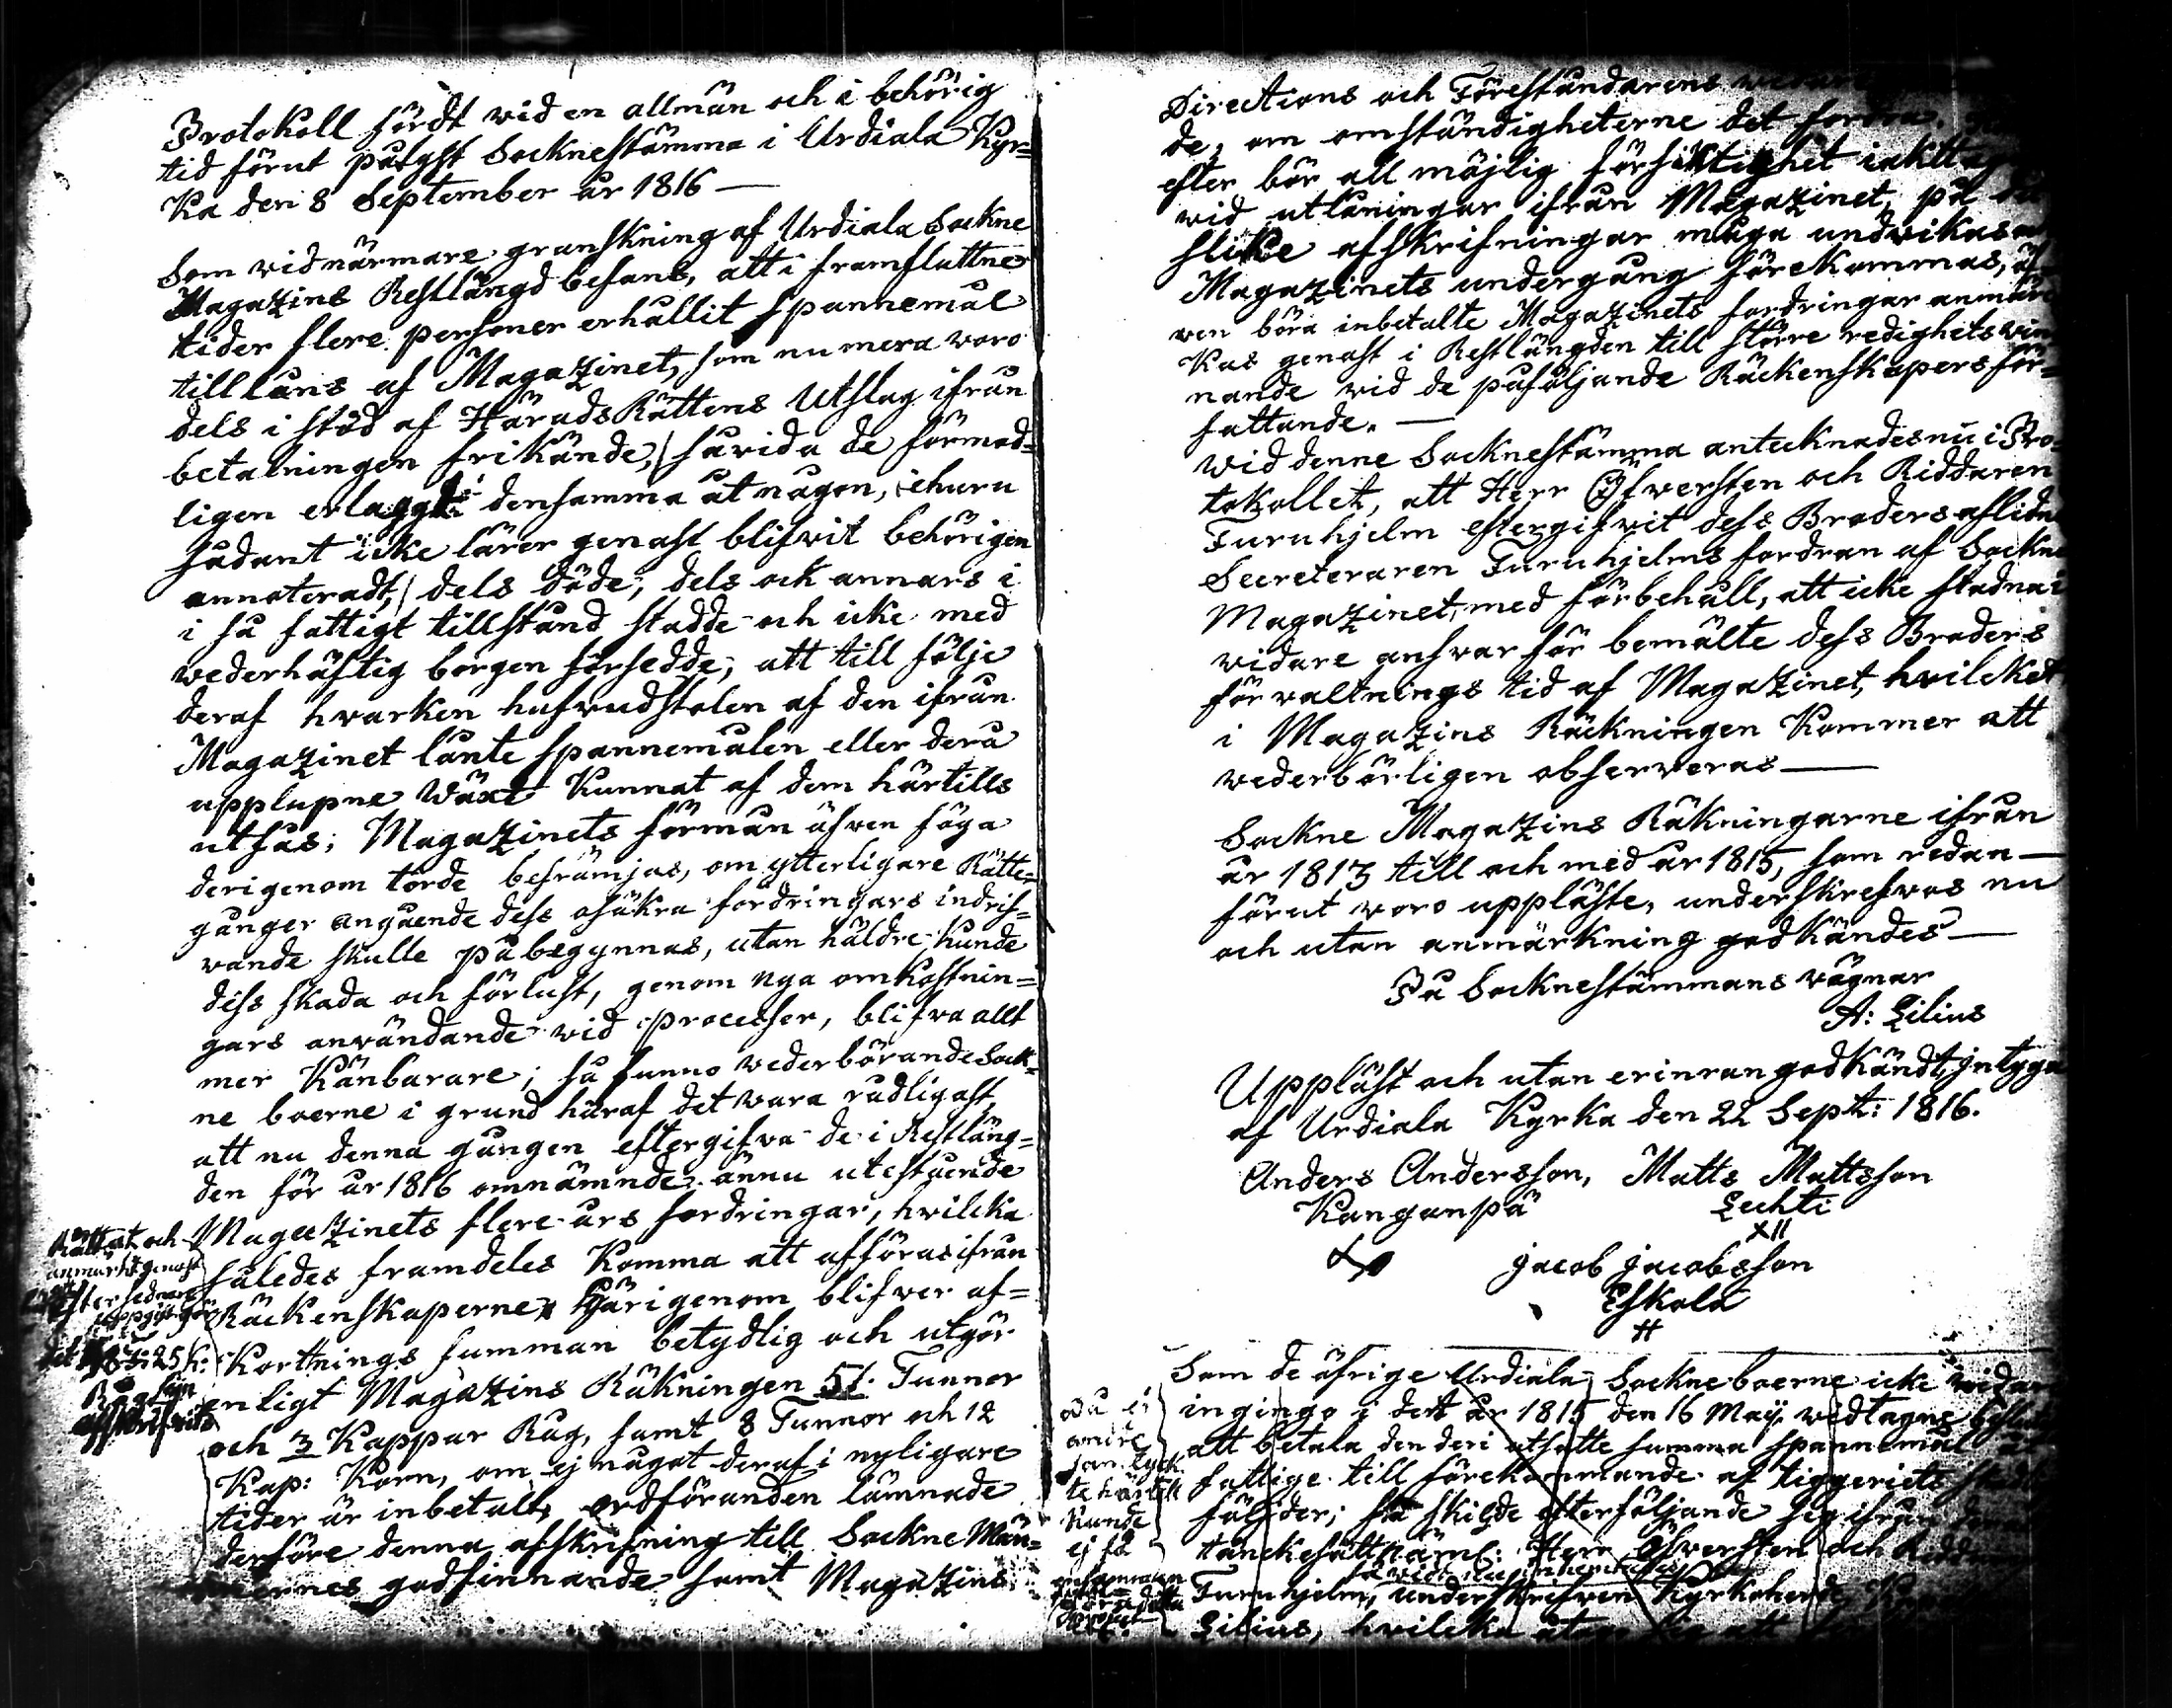 Protokoll fördt wid en allmän och i behörig
tid förut pålyst Socknestämma i Urdiala Kyr=
ka den 8 September år 1816 —
Som wid närmare granskning af Urdiala Sockne
Magazins Restlängd befans, att i framfluttne
tider flere personer erhållit Spannemål
till låns af Magazinet, som numera woro
dels i stöd af HäradsRättens Utslag ifrån
betalningen frikände, (såvida de förmod=
ligen erlaggt densamma åt någon, ehuru
sådant icke lärer genast blifvit behörigen
annoteradt,) dels döde, dels ock annars i
i så fattigt tillstånd stadde och icke med
wederhäftig borgen försedde, att till följe
deraf hwarken hufvudstolen af den ifrån
Magazinet lånte spannemålen eller derå
upplupne Wäxt kunnat af dem härtills
utfås; Magazinets förmån äfven föga
derigenom torde befrämjas, om ytterligare Rätte=
gånger angående dess osäkra fordringars indrif=
vande skulle påbegynnas, utan häldre kunde
dess skada och förlust, genom nya omkostnin=
gars användande wid processer, blifva allt
mer känbarare; så funno wederbörande Sock=
ne boerne i grund häraf det wara rådligast,
att nu denna gången eftergifva de i Restläng=
den för år 1816 omnämnde ännu utestående
Magazinets flere års fordringar, hvilcka
således framdeles komma att afföras ifrån
Räckenskaperne. Härigenom blifver af=
kortnings summan betydlig och utgör
enligt Magazins Räkningen 51. Tunnor
och 3 Kappar Råg, samt 8 Tunnor och 12
Kap: Korn, om ej något deraf i nyligare
tider är inbetalt, ordföranden lämnade
derföre denna afskrifning till Sockne Män=
nernes godfinnande samt Magazins
Rättat och
anmärkt genast
Directions och Föreståndarens
de, om omständigheterne det fordra.
efter bör all möjlig försiktighet iakttag
wid utlåningar ifrån Magazinet, på
slike afskrifningar måga undvikas
Magazinets undergång förekommas, äf
wen böra inbetalte Magazinets fordringar anmär
kas genast i Restlängden till större redighets vin
nande wid de påföljande Räckenskapers för=
fattande. —
Wid denne Socknestämma antecknades nu i Pro=
tokollet, att Herr Öfversten och Riddaren
Furuhjelm eftergifvit dess Broders aflidn
Secreteraren Furuhjelms fordran af Sockne
Magazinet, med förbehåll, att icke stadna i
widare answar för bemälte dess Broders
förvaltnings tid af Magazinet, hvilcket
i Magazins Räckningen kommer att
wederbörligen observeras —
Sockne Magazins Räkningarne ifrån
år 1813 till och med år 1815, som redan —
förut woro uppläste, underskrefvos nu
och utan anmärkning godkändes —
På Socknestämmans wägnar
A: Lilius
Uppläst och utan erinran godkändt, intyga
af Urdiala Kyrka den 22 Sept: 1816.
Anders Andersson, Matts Mattsson
Kanganpä Lechti
Jacob Jacobsson
Eskola
Som de öfrige Urdiala Sockneboerne icke
ingingo i dett år 1815 den 16 May widtagne
att betala den deri utsatte summa spannemål
fattige till förekommande af tiggeriets
följder; så skilde efterföljande sig ifrån
tanckesätt näml: Herr Öfversten och
Furuhjelm, underskrefven Kyrkoherde
Lilius, hvilcka